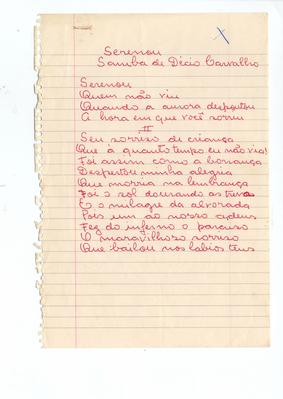 Serenou
Samba de Décio Carvalho
Serenou
Quem não viu
Quando a aurora despertou
A hora em que você sorriu
II
Seu sorriso de criança
Que a quanto tempo eu não via!
Foi assim como a bonança
Despertou minha alegria
Que morria na lembrança
Foi o sol dourando as trevas
E o milagre da alvorada
Pois um ao nosso adeus
Fez do inferno o paraiso
O maravilhoso sorriso
Que bailou nos labios teus